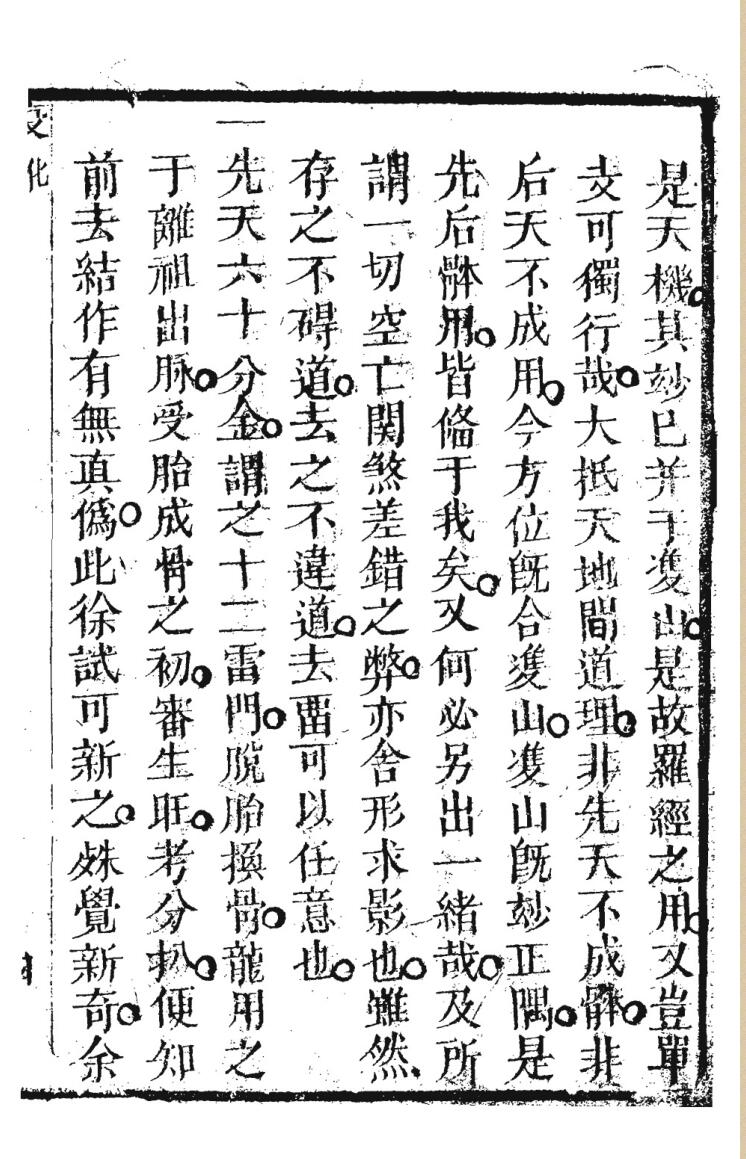 是天機其玅已并于䨇山是故羅經之用又豈單
支可獨行哉大抵天地間道理非先天不成骵非
后天不成用今方位旣合䨇山䨇山旣玅正隅是
先后骵用皆偹于我矣又何必另出一緒哉及所
謂一切空亡関煞差錯之弊亦舍形求影也雖然
存之不碍道去之不違道去畱可以任意也
一先天六十分金謂之十二雷門脫胎換骨龍用之
于離祖出脉受胎成骨之初審生旺考分扒便知
前去結作有無真僞此徐試可新之殊覺新奇余